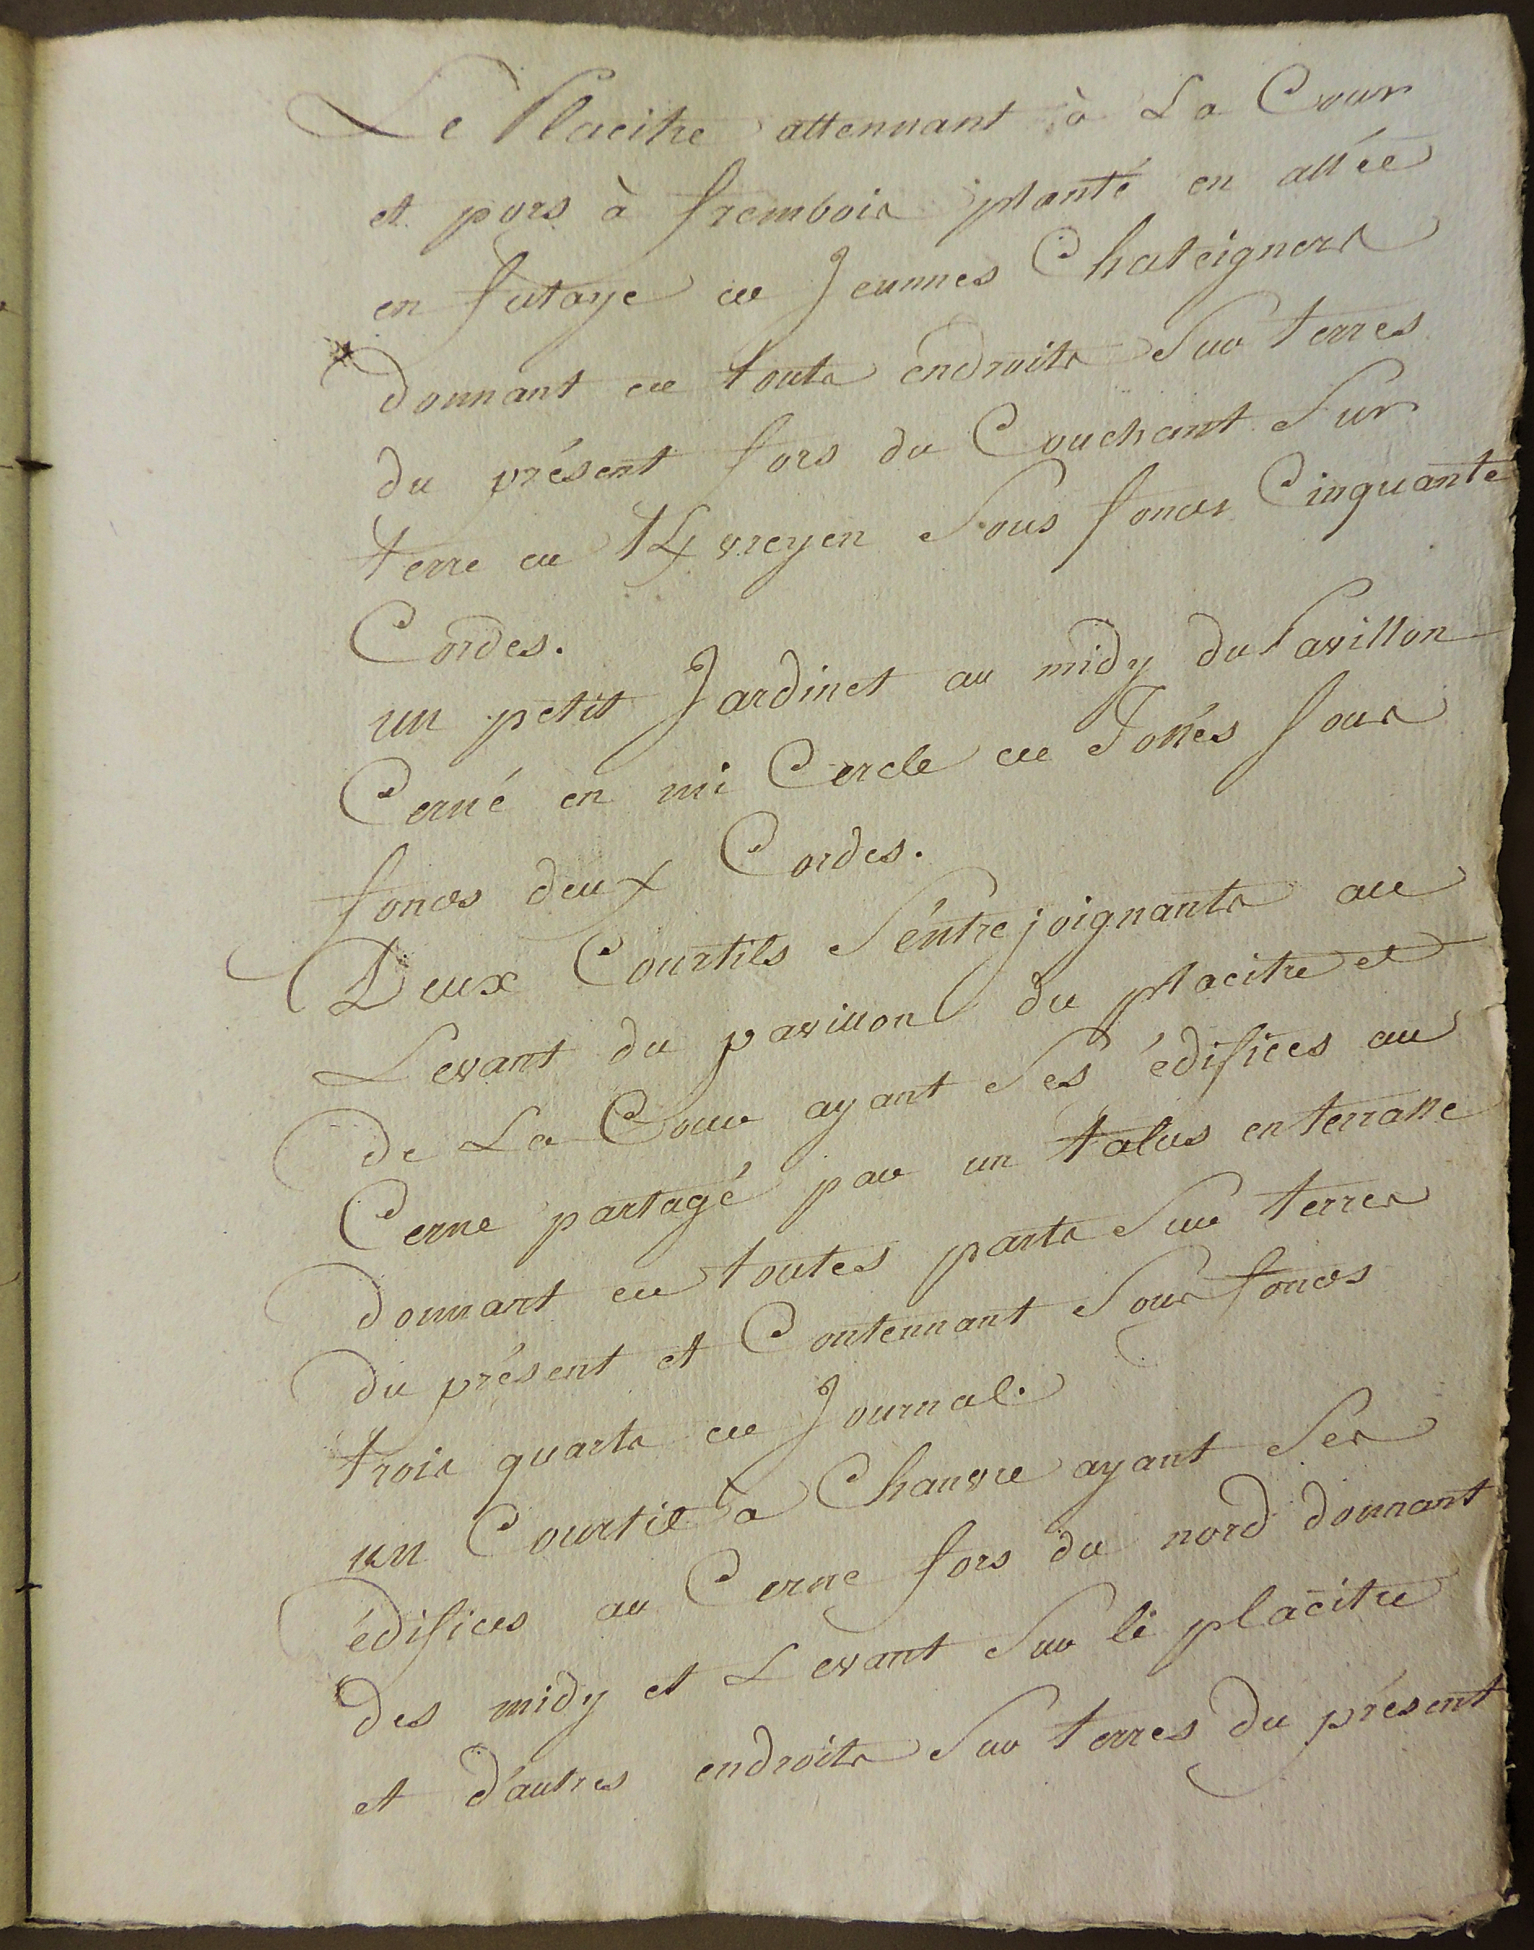 Le Placitre attennant à La Cour
et pors à frembois planté en allée
en futaye de Jeunnes Chateigners
donnant de touts endroits Sur terres
du présent fors du Couchant Sur
terre de Sous fonds Cinquante
Cordes.
un petit Jardinet au midy du Pavillon
Cerné en mi Cercle de fossés Sous
fonds deux Cordes.
Deux Courtils S'éntrejoignants au
Levant du pavillon du placitre et
de La Cour ayant Ses édifices au
Cerne partagé par un talus en terrasse
donnant de toutes parts Sur terres
du présent et Contennant Sous fonds
trois quarts de Journal.
un Courtil à Chanvre ayant Ses
édifices au Cerne fors du nord donnant
des midy et Levant Sur le placitre
et d'autres endroits Sur terres du présent